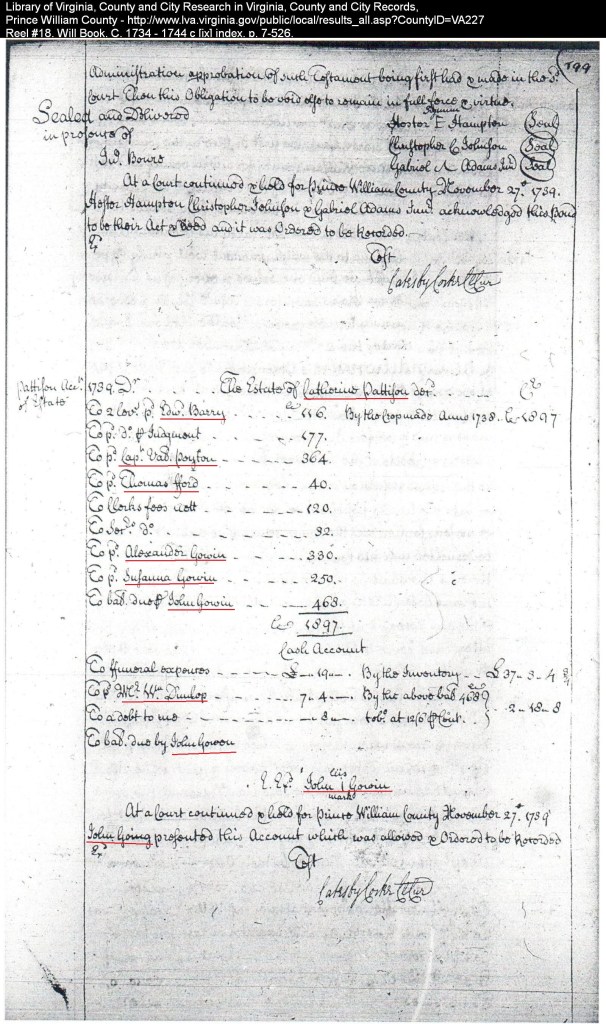 Library of Virginia, County and City Research in Virginia, County and City Records,
Prince William County - http://www.lva.virginia.gov/public/local/results_all.asp?CountyID=VA227
Reel #18, Will Book, C, 1734 - 1744 c [ix] index, p. 7-526.
199
Administration approbation of such Testament being first had & made in the sd.
Court Then this Obligation to be void else to remain in full force & virtue.
Sealed and Delivered
in presence of
Hestor E Hampton Seal
Christopher C Johnson Seal
Gabriel A Adams Junr Seal
At a Court continued & held for Prince William County November 27th 1739.
Hestor Hampton Christopher Johnson & Gabriel Adams Junr. acknowledged this Bond
to be their Act & Deed and it was Ordered to be Recorded.
Test
Catesby Cocke Cl Cur
Pattison Acct.
of Estate
1739. Dr. The Estate of Catherine Pattison decd. Cr
To 2 Levs. pd. Edwd. Barry 116. By the Crop made Anno 1738.. 1897
To pd. Do. & Judgment 177.
To pd. Capt. Val. Peyton 364.
To pd. Thomas fford 40.
To Clerks fees 120.
To Do. 32.
To pd. Alexander Gowin 330.
To pd. Susanna Gowin 250.
To bal. due John Gowin 468.
1897.
Cash Account
To ffuneral expences £ 19 By the Inventory £ 37-3-4
To pd. Mr. Wm Dunlop 7-4 By the above bal 468
To a debt to me 3 tobo. at 12/6 Cent. 2-18-8
To bal. due by John Gowen
his
John I Gowin
mark
At a Court continued & held for Prince William County November 27th 1739
John Going presented this Account which was allowed & Ordered to be Recorded
Test
Catesby Cocke Cl Cur